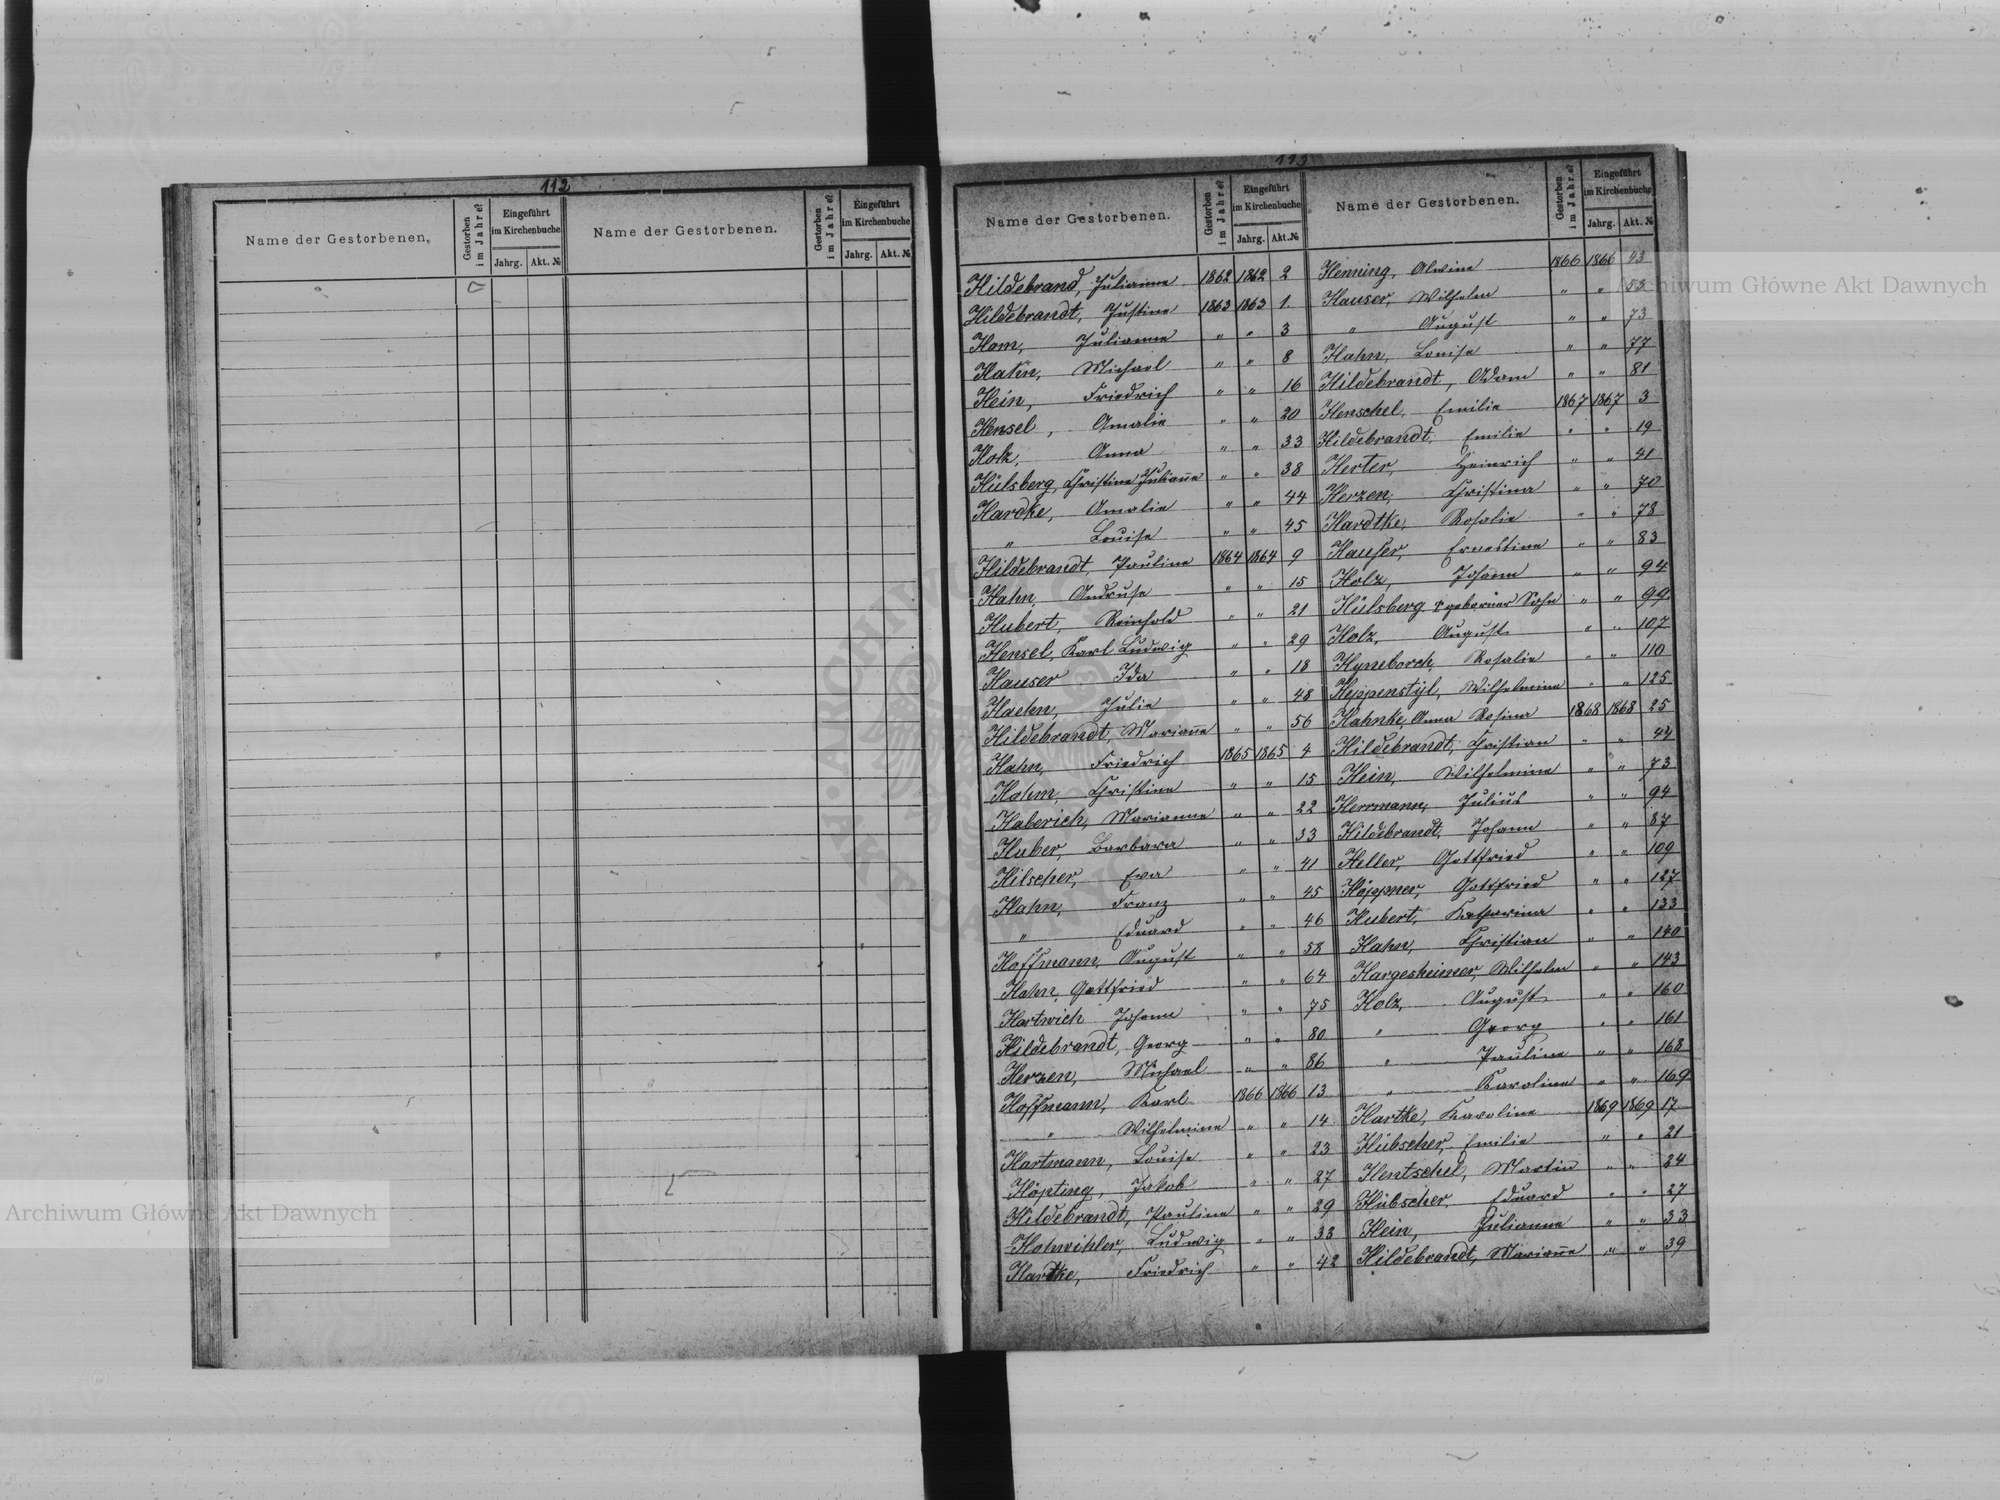 112
Name der Gestorbenen.
Gestorben im Jahre?
Eingeführt im Kirchenbuche
Jahrg.
Akt. №
Name der Gestorbenen.
Gestorben im Jahre?
Eingeführt im Kirchenbuche
Jahrg.
Akt. №
113
Name der Gestorbenen.
Gestorben im Jahre?
Eingeführt im Kirchenbuche
Jahrg.
Akt. №
Hildebrand, Julianne 1862 1862 2
Hildebrandt, Justine 1863 1863 1.
Hom, Julianne " " 3
Hahn, Michael " " 8
Hein, Friedrich " " 16
Hensel, Amalie " " 20
Holz, Anna " " 33
Hülsberg, Christine Julian̄e " " 38
Hardke, Amalie " " 44
" Louise " " 45
Hildebrandt, Pauline 1864 1864 9
Hahn, Andreas " " 15
Hubert, Reinhold " " 21
Hensel, Karl Ludwig " " 29
Hauser Ida " " 18
Haehn, Julie " " 48
Hildebrandt, Marian̄e " " 56
Hahn, Friedrich 1865 1865 4
Hahm, Christine " " 15
Haberich, Marianne " " 22
Huber, Barbara " " 33
Hilscher, Eva " " 41
Hahn, Franz " " 45
" Eduard " " 46
Hoffmann, August " " 58
Hahn, Gottfried " " 64
Hartwich Johann " " 75
Hildebrandt, Georg " " 80
Herzen, Michael " " 86
Hoffmann, Karl 1866 1866 13
" Wilhelmine " " 14
Hartmann, Louise " " 23
Höpting, Jakob " " 27
Hildebrandt, Pauline " " 29
Hohwihler, Ludwig " " 33
Hardtke, Friedrich " " 42
Name der Gestorbenen.
Gestorben im Jahre?
Eingeführt im Kirchenbuche
Jahrg.
Akt. №
Henning, Alwine 1866 1866 43
Hauser, Wilhelm " " 53
" August " " 73
Hahn, Louise " " 77
Hildebrandt, Adam " " 81
Henschel, Emilie 1867 1867 3
Hildebrandt, Emilie " " 19
Herter, Heinrich " " 41
Herzen, Christina " " 70
Hardtke, Rosalie " " 78
Hauser, Ernestine " " 83
Holz, Johann " " 94
Hülsberg geborner Sohn " " 99.
Holz, August " " 107
Hyneborch, Rosalie " " 110
Heppenstyl, Wilhelmine " " 125
Hahnke, Anna Rosina 1868 1868 25
Hildebrandt, Christian " " 44
Hein, Wilhelmine " " 73
Herrmann, Julius " " 94
Hildebrandt, Johann " " 87
Heller, Gottfried " " 109
Höppner, Gottfried " " 127
Hubert, Katharina " " 133
Hahn, Christian " " 140
Hargesheimer, Wilhelm " " 143
Holz, August " " 160
" Georg " " 161
" Pauline " " 168
" Karoline " " 169
Hartke, Karoline 1869 1869 17
Hübscher, Emilie " " 21
Hentschel, Martin " " 24
Hübscher, Eduard " " 27
Hein, Julianne " " 33
Hildebrandt, Marian̄e " " 39
Archiwum Główne Akt Dawnych
Archiwum Główne Akt Dawnych